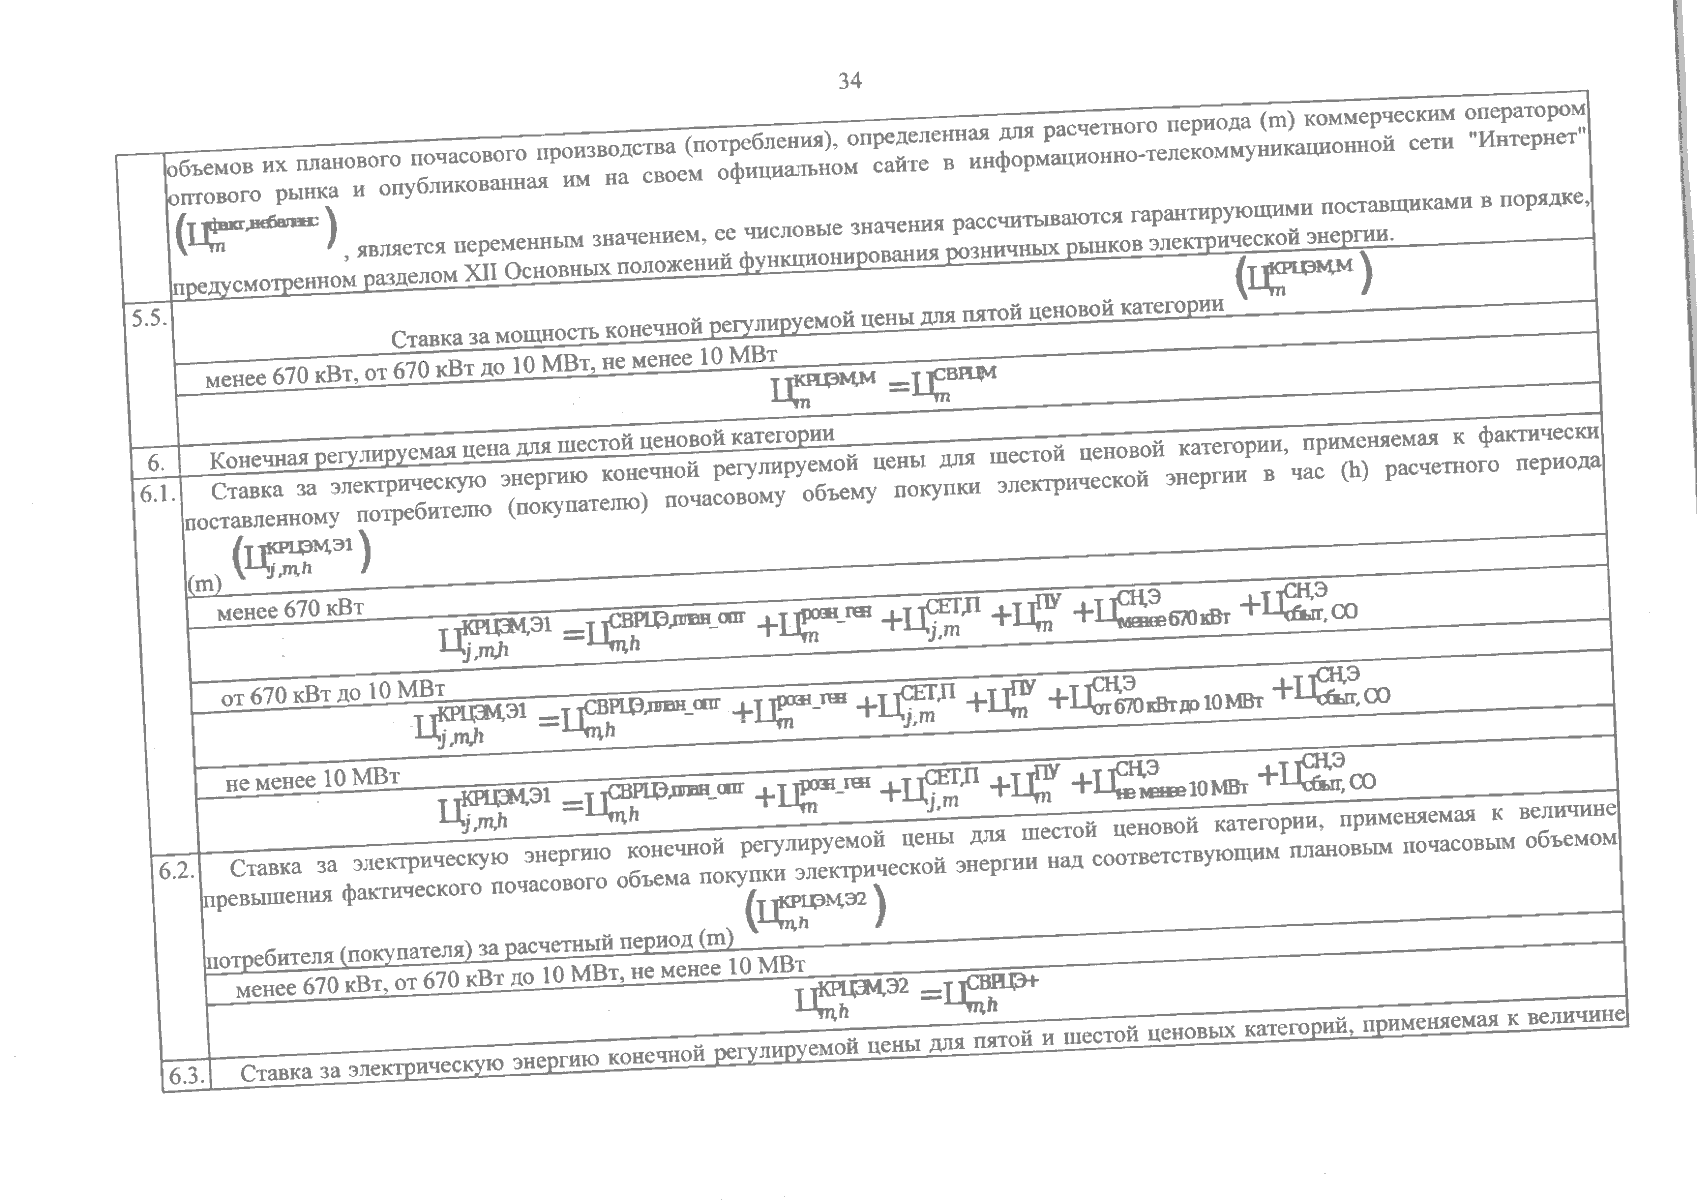 34
объемов их планового почасового производства (потребления), определенная для расчетного периода (m) коммерческим оператором
оптового рынка и опубликованная им на своем официальном сайте в информационно-телекоммуникационной сети "Интернет"
(Ц_m^{факт,небаланс}) , является переменным значением, ее числовые значения рассчитываются гарантирующими поставщиками в порядке,
предусмотренном разделом XII Основных положений функционирования розничных рынков электрической энергии.
5.5. Ставка за мощность конечной регулируемой цены для пятой ценовой категории (Ц_m^{КРЦЭМ,М})
менее 670 кВт, от 670 кВт до 10 МВт, не менее 10 МВт
Ц_m^{КРЦЭМ,М} =Ц_m^{СВРЦМ}
6. Конечная регулируемая цена для шестой ценовой категории
6.1. Ставка за электрическую энергию конечной регулируемой цены для шестой ценовой категории, применяемая к фактически
поставленному потребителю (покупателю) почасовому объему покупки электрической энергии в час (h) расчетного периода
(m) (Ц_{j,m,h}^{КРЦЭМ,Э1})
менее 670 кВт
Ц_{j,m,h}^{КРЦЭМ,Э1} =Ц_{m,h}^{СВРЦЭ,план_опт} +Ц_m^{розн_ген} +Ц_{j,m}^{СЕТ,П} +Ц_m^{ПУ} +Ц_{менее 670 кВт}^{СН,Э} +Ц_{сбыт, СО}^{СН,Э}
от 670 кВт до 10 МВт
Ц_{j,m,h}^{КРЦЭМ,Э1} =Ц_{m,h}^{СВРЦЭ,план_опт} +Ц_m^{розн_ген} +Ц_{j,m}^{СЕТ,П} +Ц_m^{ПУ} +Ц_{от 670 кВт до 10 МВт}^{СН,Э} +Ц_{сбыт, СО}^{СН,Э}
не менее 10 МВт
Ц_{j,m,h}^{КРЦЭМ,Э1} =Ц_{m,h}^{СВРЦЭ,план_опт} +Ц_m^{розн_ген} +Ц_{j,m}^{СЕТ,П} +Ц_m^{ПУ} +Ц_{не менее 10 МВт}^{СН,Э} +Ц_{сбыт, СО}^{СН,Э}
6.2. Ставка за электрическую энергию конечной регулируемой цены для шестой ценовой категории, применяемая к величине
превышения фактического почасового объема покупки электрической энергии над соответствующим плановым почасовым объемом
потребителя (покупателя) за расчетный период (m) (Ц_{m,h}^{КРЦЭМ,Э2})
менее 670 кВт, от 670 кВт до 10 МВт, не менее 10 МВт
Ц_{m,h}^{КРЦЭМ,Э2} =Ц_{m,h}^{СВРЦЭ+}
6.3. Ставка за электрическую энергию конечной регулируемой цены для пятой и шестой ценовых категорий, применяемая к величине